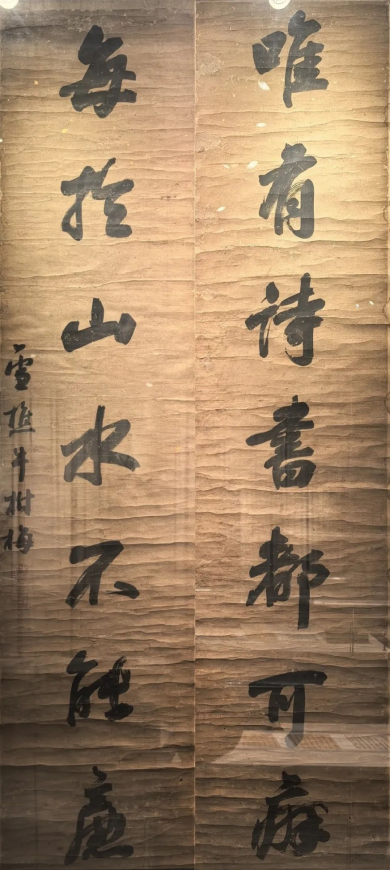 唯有诗書都可癖
每於山水不能廉
雪樵牛樹梅